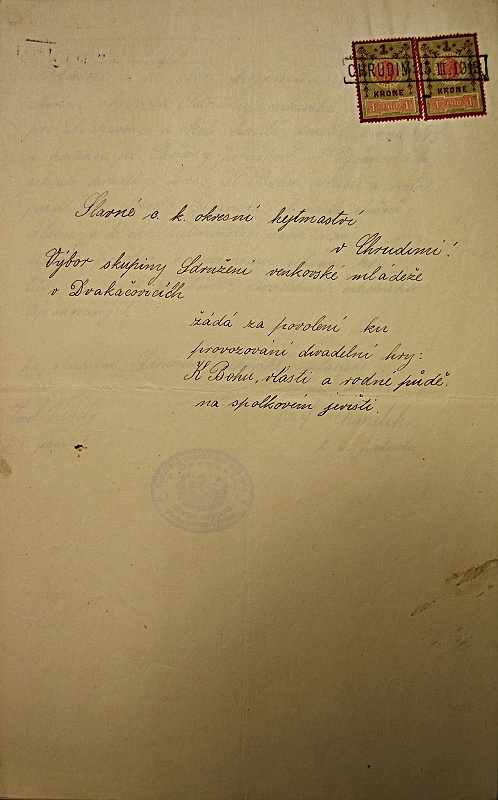 1 1
CHRUDIM 15.III.191
KRONE KRONE
1 1910 1 1 1910 1
Slavné c. k. okresní hejtmaství
v Chrudimi!
Výbor skupiny Sdružení venkovské mládeže
v Dvakačovicích
žádá za povolení ku
provozování divadelní hry:
K Bohu, vlasti a rodné půdě.
na spolkovém jevišti.